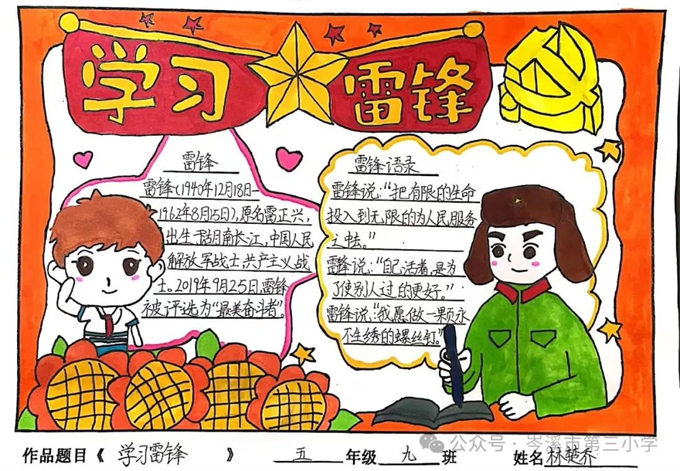 学习 雷锋
雷锋
雷锋(1940年12月18日—
1962年8月15日),原名雷正兴,
出生于湖南长沙,中国人民
解放军战士,共产主义战
士。2019年9月25日雷锋
被评选为“最美奋斗者”。
雷锋语录
雷锋说:“把有限的生命
投入到无限的为人民服务
之中去。”
雷锋说:“自己活着,是为
了使别人过的更好。”
雷锋说:“我愿做一颗永
不生锈的螺丝钉。”
作品题目《 学习雷锋 》 五 年级 九 班 姓名 林楚乔
公众号·岑溪市第三小学